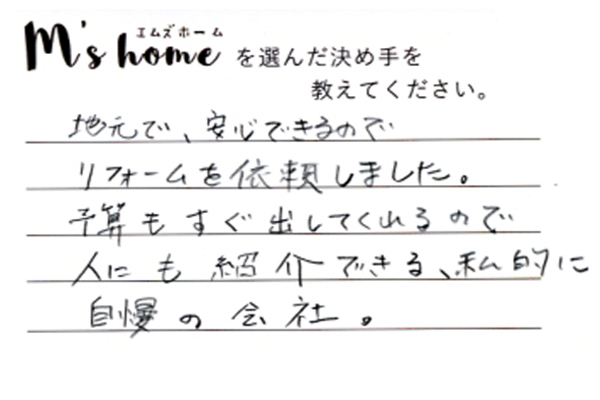 エムズホーム
M's home を選んだ決め手を
教えてください。
地元で、安心できるので
リフォームを依頼しました。
予算もすぐ出してくれるので
人にも紹介できる、私的に
自慢の会社。